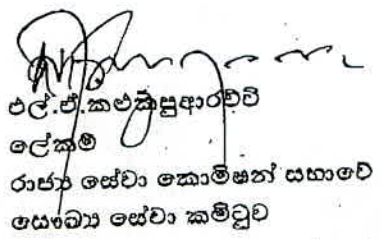 එල්.ඒ.කළුකපුආරච්චි
ලේකම්
රාජ්‍ය සේවා කොමිෂන් සභාවේ
සෞඛ්‍ය සේවා කමිටුව